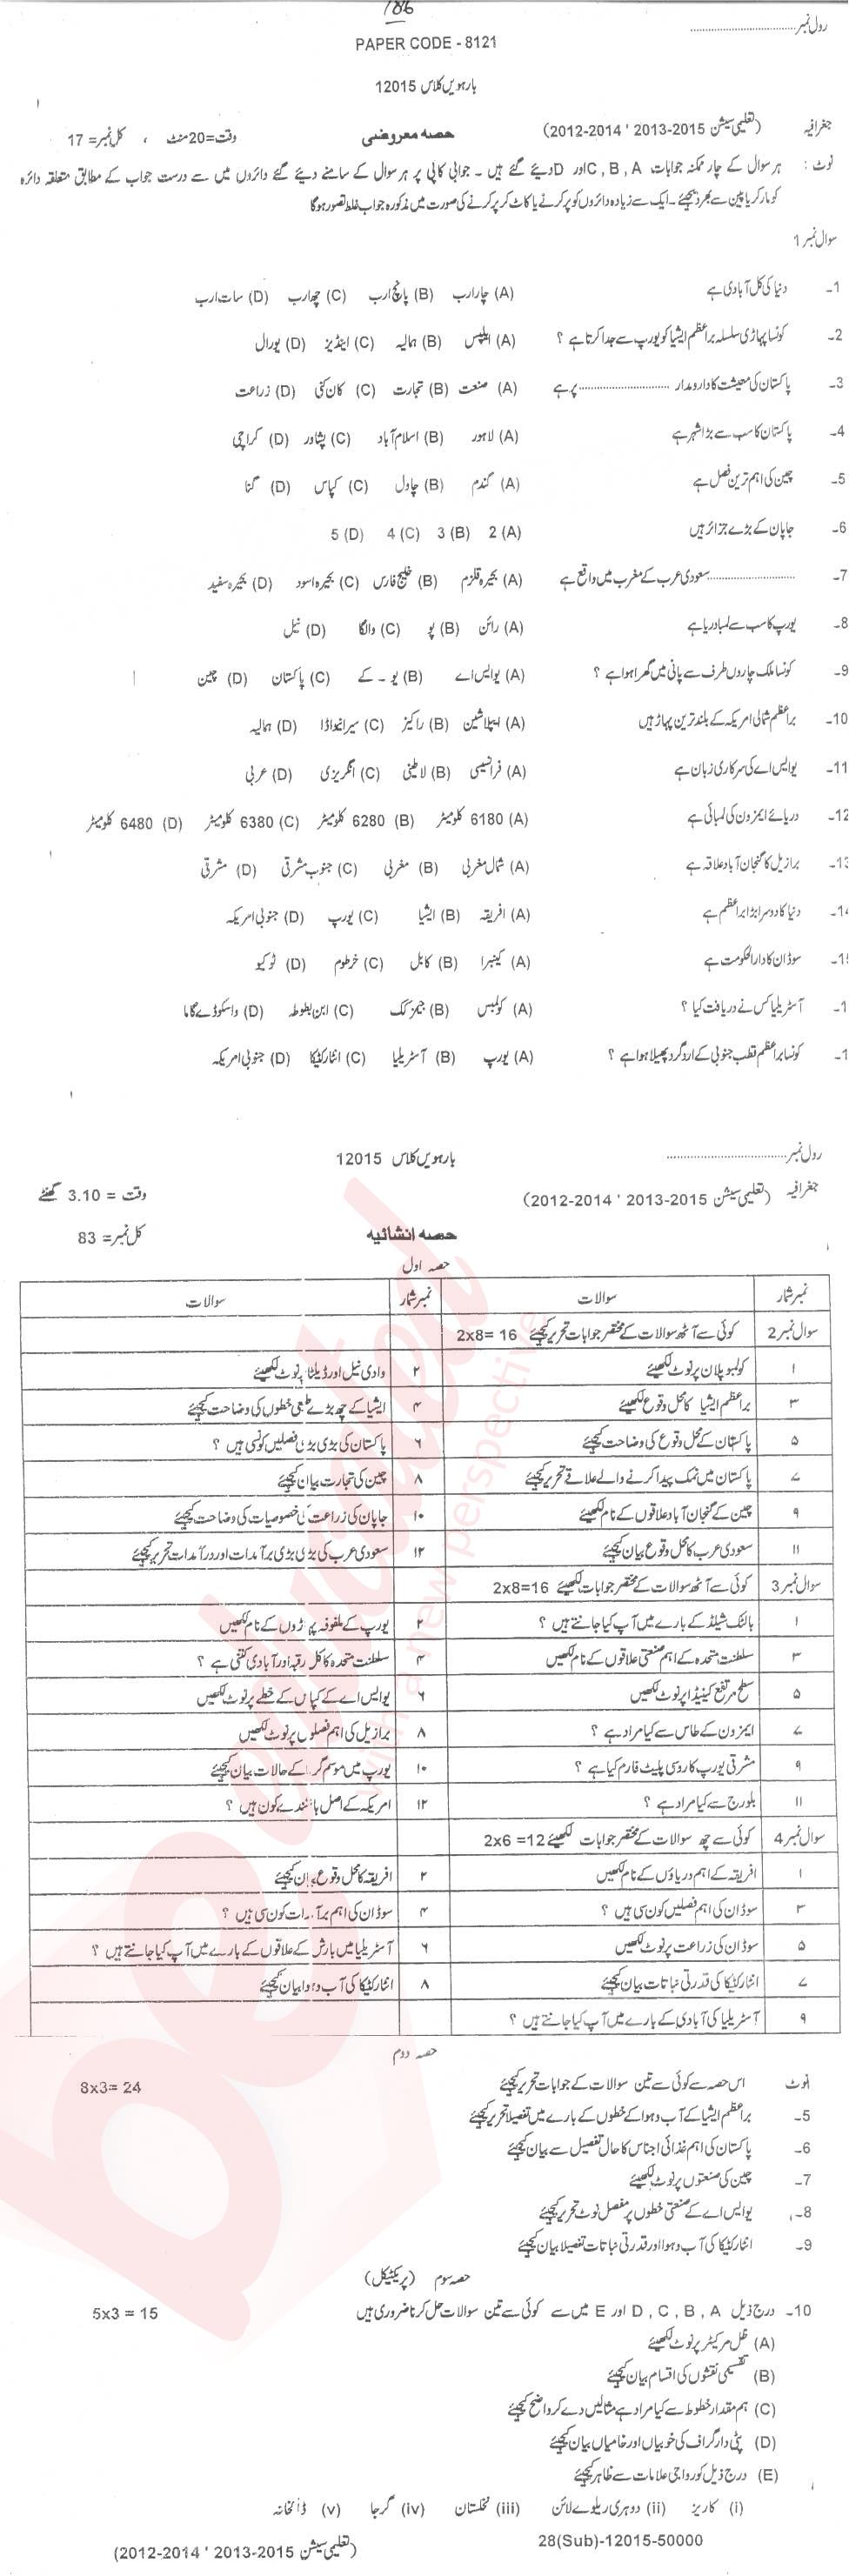 186
رول نمبر
PAPER CODE - 8121
بارہویں کلاس 12015
جغرافیہ (تعلیمی سیشن 2015-2013 ' 2014-2012) حصہ معروضی وقت=20منٹ ، کل نمبر= 17
نوٹ : ہر سوال کے چار ممکنہ جوابات C , B , A اور D دیئے گئے ہیں ۔ جوابی کاپی پر ہر سوال کے سامنے دیئے گئے دائروں میں سے درست جواب کے مطابق متعلقہ دائرہ
کو مارکر یا پین سے بھر دیجئے ۔ ایک سے زیادہ دائروں کو پر کرنے یا کاٹ کر پر کرنے کی صورت میں مذکورہ جواب غلط تصور ہوگا
سوال نمبر 1
1۔ دنیا کی کل آبادی ہے (A) چار ارب (B) پانچ ارب (C) چھ ارب (D) سات ارب
2۔ کونسا پہاڑی سلسلہ براعظم ایشیا کو یورپ سے جدا کرتا ہے ؟ (A) ایلپس (B) ہمالیہ (C) اینڈیز (D) یورال
3۔ پاکستان کی معیشت کا دارومدار .......... پر ہے (A) صنعت (B) تجارت (C) کان کنی (D) زراعت
4۔ پاکستان کا سب سے بڑا شہر ہے (A) لاہور (B) اسلام آباد (C) پشاور (D) کراچی
5۔ چین کی اہم ترین فصل ہے (A) گندم (B) چاول (C) کپاس (D) گنا
6۔ جاپان کے بڑے جزائر ہیں (A) 2 (B) 3 (C) 4 (D) 5
7۔ .......... سعودی عرب کے مغرب میں واقع ہے (A) بحیرہ قلزم (B) خلیج فارس (C) بحیرہ اسود (D) بحیرہ سفید
8۔ یورپ کا سب سے لمبا دریا ہے (A) رائن (B) پو (C) والگا (D) نیل
9۔ کونسا ملک چاروں طرف سے پانی میں گھرا ہوا ہے ؟ (A) یو ایس اے (B) یو ۔ کے (C) پاکستان (D) چین
10۔ براعظم شمالی امریکہ کے بلند ترین پہاڑ ہیں (A) اپیلاشین (B) راکیز (C) سیرانیواڈا (D) ہمالیہ
11۔ یو ایس اے کی سرکاری زبان ہے (A) فرانسیسی (B) لاطینی (C) انگریزی (D) عربی
12۔ دریائے ایمزون کی لمبائی ہے (A) 6180 کلومیٹر (B) 6280 کلومیٹر (C) 6380 کلومیٹر (D) 6480 کلومیٹر
13۔ برازیل کا گنجان آباد علاقہ ہے (A) شمال مغربی (B) مغربی (C) جنوب مشرقی (D) مشرقی
14۔ دنیا کا دوسرا بڑا براعظم ہے (A) افریقہ (B) ایشیا (C) یورپ (D) جنوبی امریکہ
1۔ سوڈان کا دارالحکومت ہے (A) کینبرا (B) کابل (C) خرطوم (D) ٹوکیو
1۔ آسٹریلیا کس نے دریافت کیا ؟ (A) کولمبس (B) جیمز کک (C) ابن بطوطہ (D) واسکوڈے گاما
1۔ کونسا براعظم قطب جنوبی کے ارد گرد پھیلا ہوا ہے ؟ (A) یورپ (B) آسٹریلیا (C) انٹارکٹیکا (D) جنوبی امریکہ
رول نمبر
بارہویں کلاس 12015
جغرافیہ (تعلیمی سیشن 2015-2013 ' 2014-2012) وقت = 3.10 گھنٹے
حصہ انشائیہ کل نمبر= 83
حصہ اول
نمبر شمار سوالات نمبر شمار سوالات
سوال نمبر 2 کوئی سے آٹھ سوالات کے مختصر جوابات تحریر کیجئے 2x8= 16
۱ کولمبو پلان پر نوٹ لکھیئے ۲ وادی نیل اور ڈیلٹا پر نوٹ لکھیئے
۳ براعظم ایشیا کا محل وقوع لکھیئے ۴ ایشیا کے چھ بڑے طبعی خطوں کی وضاحت کیجئے
۵ پاکستان کے محل وقوع کی وضاحت کیجئے ۶ پاکستان کی بڑی بڑی فصلیں کونسی ہیں ؟
۷ پاکستان میں نمک پیدا کرنے والے علاقے تحریر کیجئے ۸ چین کی تجارت بیان کیجئے
۹ چین کے گنجان آباد علاقوں کے نام لکھیئے ۱۰ جاپان کی زراعت کی خصوصیات کی وضاحت کیجئے
۱۱ سعودی عرب کا محل وقوع بیان کیجئے ۱۲ سعودی عرب کی بڑی بڑی برآمدات اور درآمدات تحریر کیجئے
سوال نمبر 3 کوئی سے آٹھ سوالات کے مختصر جوابات لکھیئے 2x8=16
۱ بالٹک شیلڈ کے بارے میں آپ کیا جانتے ہیں ؟ ۲ یورپ کے ملفوفہ پہاڑوں کے نام لکھیں
۳ سلطنت متحدہ کے اہم صنعتی علاقوں کے نام لکھیں ۴ سلطنت متحدہ کا کل رقبہ اور آبادی کتنی ہے ؟
۵ سطح مرتفع کینیڈا پر نوٹ لکھیں ۶ یو ایس اے کے کپاس کے خطے پر نوٹ لکھیں
۷ ایمزون کے طاس سے کیا مراد ہے ؟ ۸ برازیل کی اہم فصلوں پر نوٹ لکھیں
۹ مشرقی یورپ کا روسی پلیٹ فارم کیا ہے ؟ ۱۰ یورپ میں موسم گرما کے حالات بیان کیجئے
۱۱ بلورج سے کیا مراد ہے ؟ ۱۲ امریکہ کے اصل باشندے کون ہیں ؟
سوال نمبر 4 کوئی سے چھ سوالات کے مختصر جوابات لکھیئے 2x6 =12
۱ افریقہ کے اہم دریاؤں کے نام لکھیں ۲ افریقہ کا محل وقوع بیان کیجئے
۳ سوڈان کی اہم فصلیں کون سی ہیں ؟ ۴ سوڈان کی اہم برآمدات کون سی ہیں ؟
۵ سوڈان کی زراعت پر نوٹ لکھیں ۶ آسٹریلیا میں بارش کے علاقوں کے بارے میں آپ کیا جانتے ہیں ؟
۷ انٹارکٹیکا کی قدرتی نباتات بیان کیجئے ۸ انٹارکٹیکا کی آب و ہوا بیان کیجئے
۹ آسٹریلیا کی آبادی کے بارے میں آپ کیا جانتے ہیں ؟
حصہ دوم
نوٹ اس حصہ سے کوئی سے تین سوالات کے جوابات تحریر کیجئے 8x3= 24
5۔ براعظم ایشیا کے آب و ہوا کے خطوں کے بارے میں تفصیلا تحریر کیجئے
6۔ پاکستان کی اہم غذائی اجناس کا حال تفصیل سے بیان کیجئے
7۔ چین کی صنعتوں پر نوٹ لکھیئے
8۔ یو ایس اے کے صنعتی خطوں پر مفصل نوٹ تحریر کیجئے
9۔ انٹارکٹیکا کی آب و ہوا اور قدرتی نباتات تفصیلا بیان کیجئے
حصہ سوم (پریکٹیکل)
10۔ درج ذیل D , C , B , A اور E میں سے کوئی سے تین سوالات حل کرنا ضروری ہیں 5x3 = 15
(A) ظل مرکیٹر پر نوٹ لکھیئے
(B) تقسیمی نقشوں کی اقسام بیان کیجئے
(C) ہم مقدار خطوط سے کیا مراد ہے مثالیں دے کر واضح کیجئے
(D) پٹی دار گراف کی خوبیاں اور خامیاں بیان کیجئے
(E) درج ذیل کو رواجی علامات سے ظاہر کیجئے
(i) کاریز (ii) دوہری ریلوے لائن (iii) نخلستان (iv) گرجا (v) ڈاکخانہ
28(Sub)-12015-50000 (تعلیمی سیشن 2015-2013 ' 2014-2012)
beeducated
with a new perspective